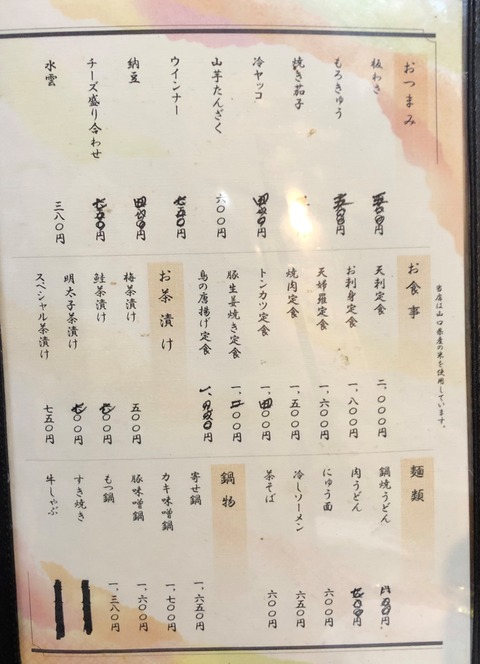 おつまみ
板わさ
もろきゅう
焼き茄子
冷ヤッコ
山芋たんざく 六〇〇円
ウインナー
納豆
チーズ盛り合わせ
水雲 三八〇円
当店は山口県産の米を使用しています。
お食事
天利定食 二、〇〇〇円
お刺身定食 一、八〇〇円
天婦羅定食 一、六〇〇円
焼肉定食 一、五〇〇円
トンカツ定食
豚生姜焼き定食
鳥の唐揚げ定食
お茶漬け
梅茶漬け 五〇〇円
鮭茶漬け
明太子茶漬け
スペシャル茶漬け 七五〇円
麺類
鍋焼うどん
肉うどん
にゅう面 六〇〇円
冷しソーメン 六五〇円
茶そば 六〇〇円
鍋物
寄せ鍋 一、六五〇円
カキ味噌鍋 一、七〇〇円
豚味噌鍋 一、六〇〇円
もつ鍋 一、三八〇円
すき焼き
牛しゃぶ